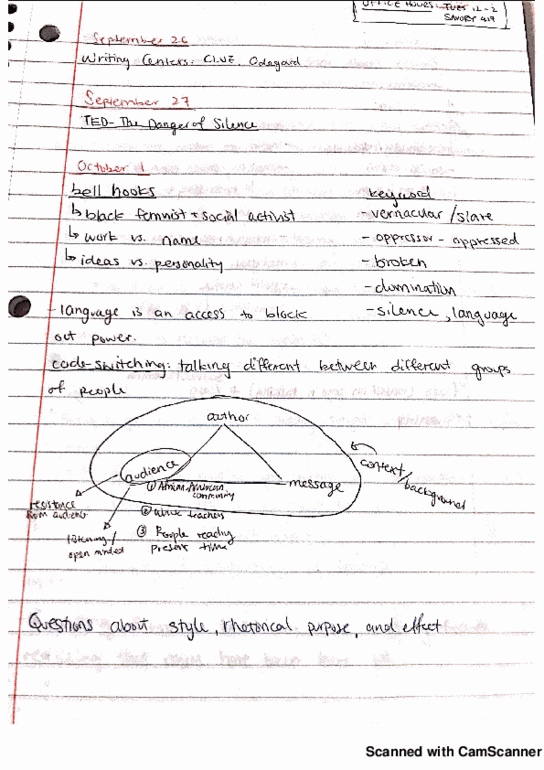 OFFICE HOURS: TUES 12-2
SAVORY 419
September 26
Writing Centers: CLUE, Odegard
September 27
TED- The Danger of Silence
October 1
bell hooks
↳ black feminist + social activist
↳ work vs. name
↳ ideas vs. personality
keyword
- vernacular / slave
- oppressor - oppressed
- broken
- domination
- silence, language
- language is an access to block
out power.
code-switching: talking different between different groups
of people
author
audience
message
① African American
community
② white teachers
③ People reading
present time
context/
background
resistance
from audience
listening/
open minded
Questions about style, rhetorical purpose, and effect
Scanned with CamScanner